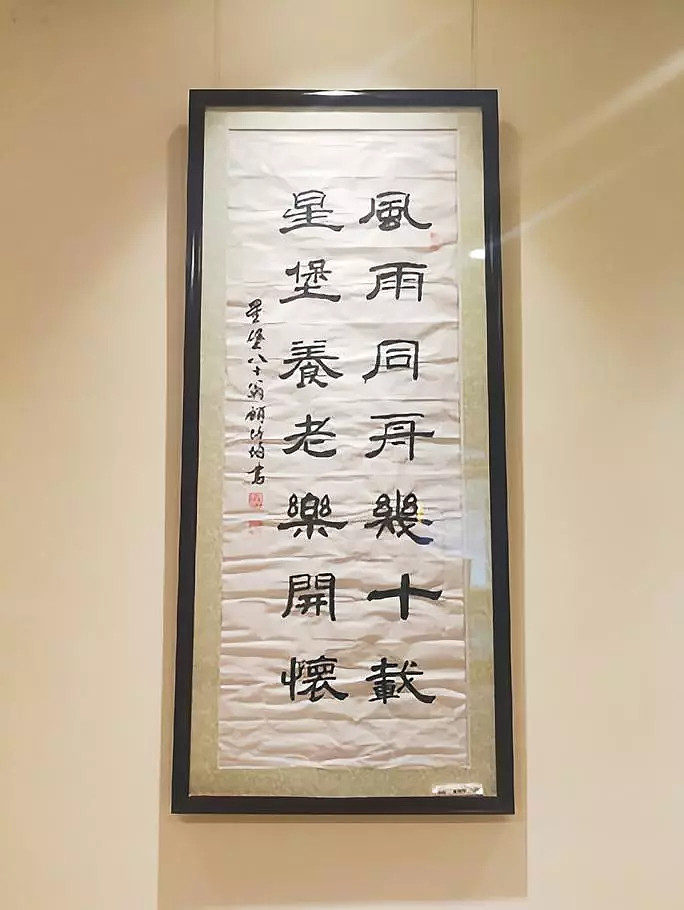 風雨同舟幾十載
星堡養老樂開懷
星堡八十翁顧
書